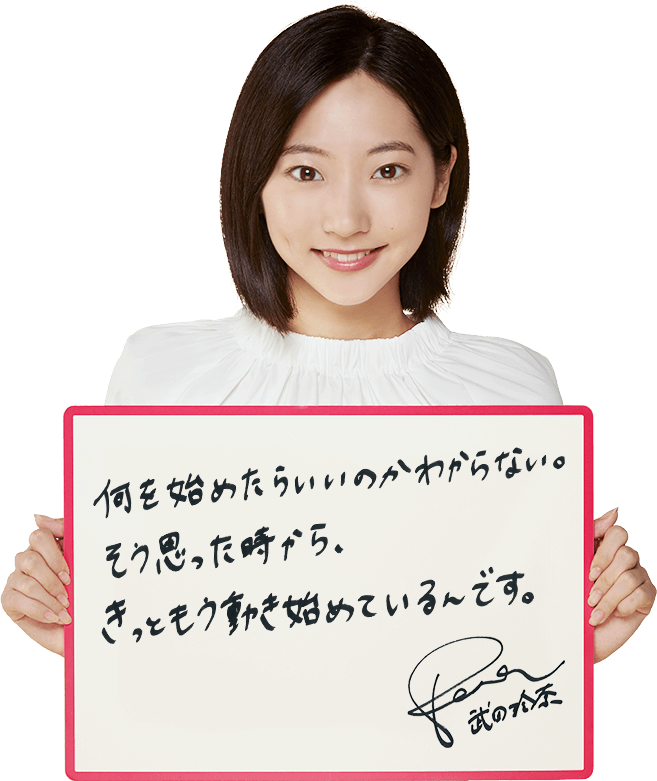 何を始めたらいいのかわからない。
そう思った時から、
きっともう動き始めているんです。
Rena
武田玲奈